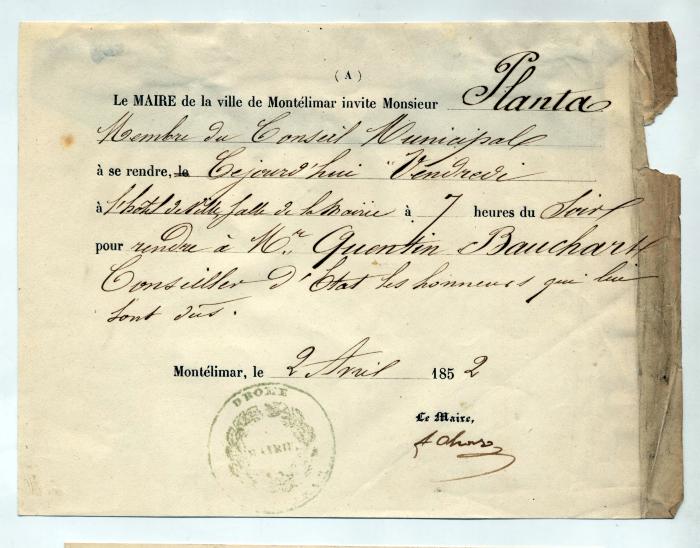 ( A )
Le MAIRE de la ville de Montélimar invite Monsieur Planta
Membre du Conseil Municipal
à se rendre, le Cejourd'hui Vendredi
à l'hôtel de Ville, salle de la Mairie à 7 heures du Soir
pour rendre à Mr. Quentin Bauchart
Conseiller d'État les honneurs qui lui
sont dûs.
Montélimar, le 2 Avril 1852
DROME
MAIRIE
Le Maire,